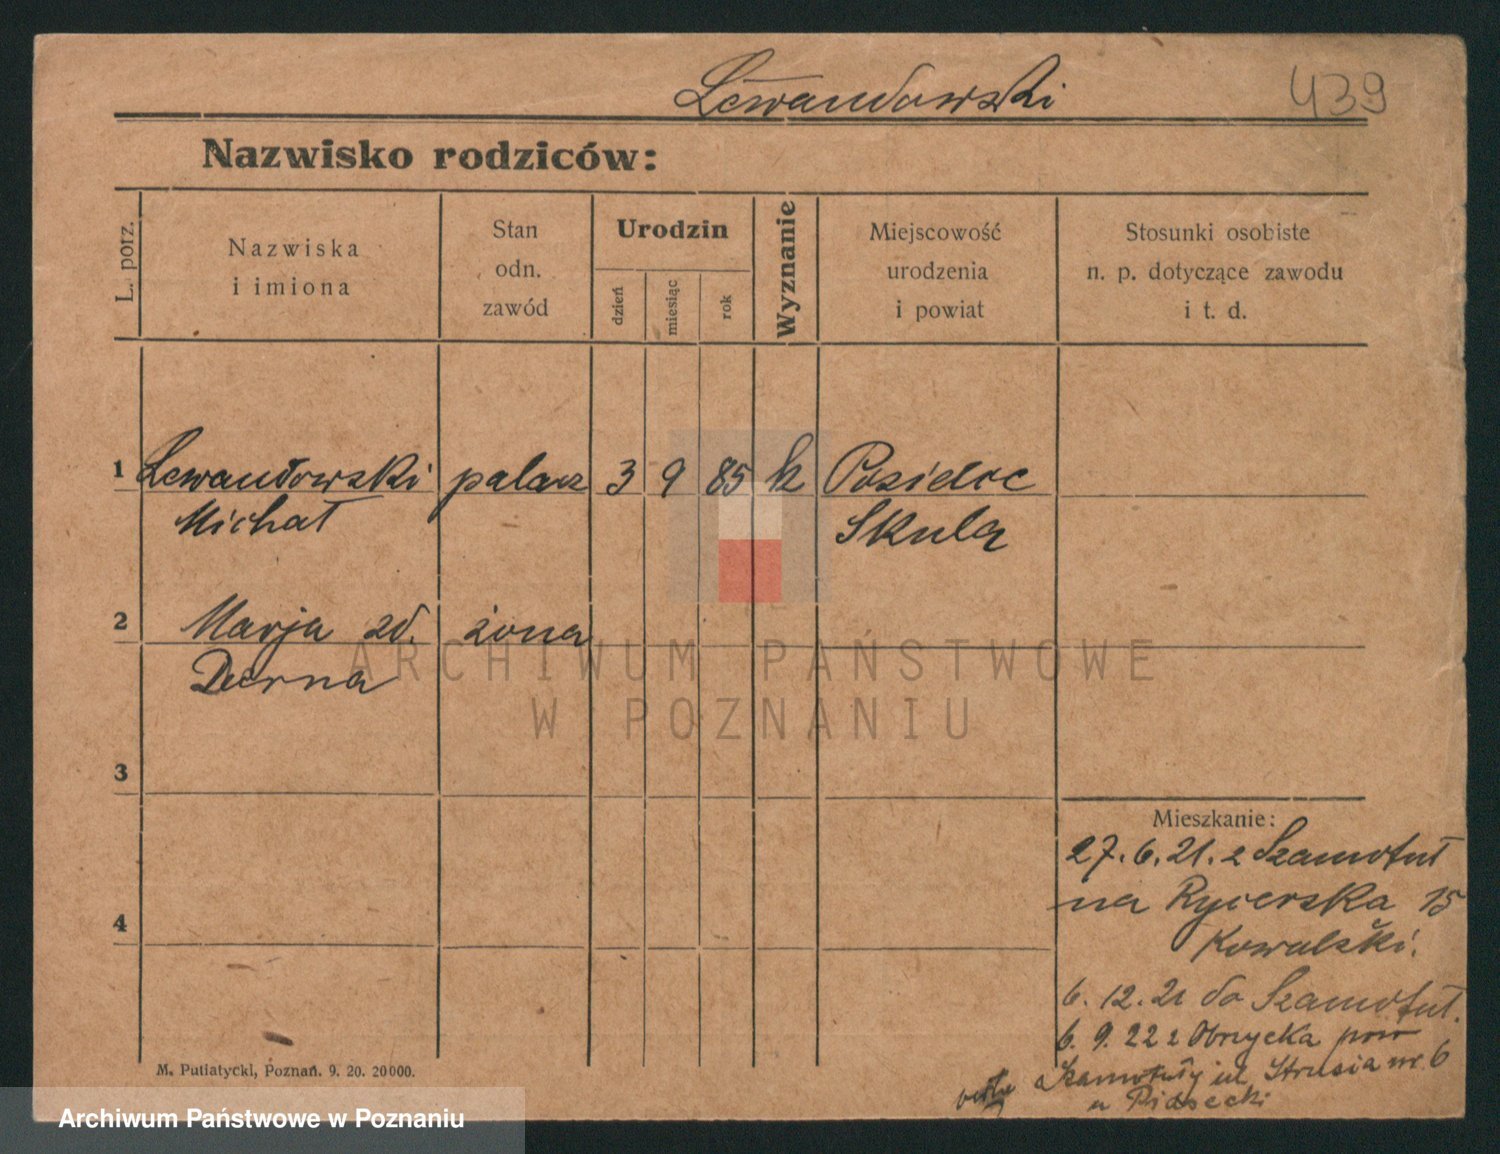 Lewandowski 439
Nazwisko rodziców:
L. porz.
Nazwiska
i imiona
Stan
odn.
zawód
Urodzin
dzień
miesiąc
rok
Wyznanie
Miejscowość
urodzenia
i powiat
Stosunki osobiste
n. p. dotyczące zawodu
i t. d.
1 Lewandowski palacz 3 9 85 k
Michał Skula
2 Marja zd. żona
3
4
Mieszkanie:
27. 6. 21. z Szamotuł
na Rycerska 15
Kowalski.
6. 12. 21 do Szamotuł.
6. 9. 22 z Obrzycka pow
Szamotuły ul. Strusia nr. 6
u
M. Putiatycki, Poznań. 9. 20. 20000.
ARCHIWUM PAŃSTWOWE
W POZNANIU
Archiwum Państwowe w Poznaniu